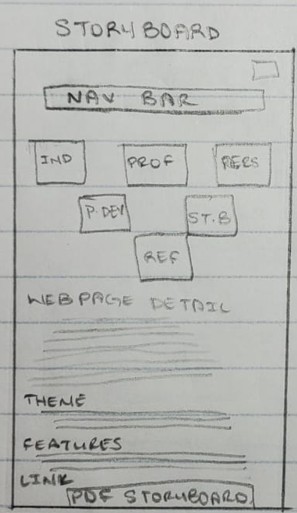 STORYBOARD
NAV BAR
IND PROF PERS
P.DEV ST.B
REF
WEBPAGE DETAIL
THEME
FEATURES
LINK
PDF STORYBOARD